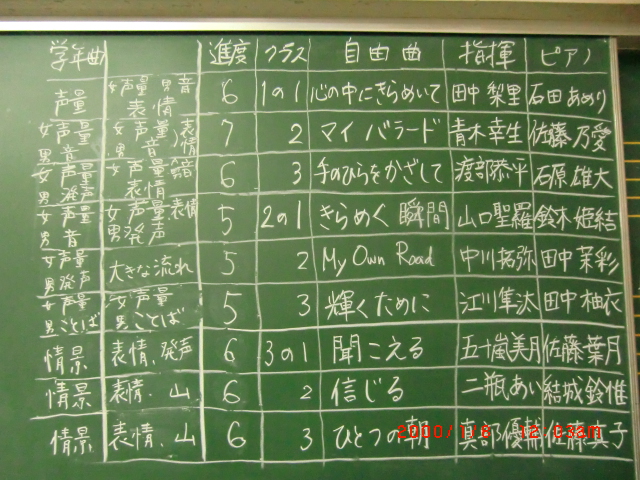 学年曲 進度 クラス 自由曲 指揮 ピアノ
声量 女声量 男音 表情 6 1の1 心の中にきらめいて 田中 梨里 石田 あめり
女声量 男音量 女声量 男音量 表情 7 2 マイバラード 青木幸生 佐藤乃愛
女声量 男発声 女声量 表情 6 3 手のひらをかざして 渡部恭平 石原雄大
女声量 男音 女声量 男発声 表情 5 2の1 きらめく瞬間 山口聖羅 鈴木姫結
女声量 男発声 大きな流れ 5 2 My Own Road 中川拓弥 田中茉彩
女声量 男ことば 女声量 男ことば 5 3 輝くために 江川隼汰 田中柚衣
情景 表情、発声 6 3の1 聞こえる 五十嵐美月 佐藤葉月
情景 表情、山 6 2 信じる 二瓶あい 結城鈴惟
情景 表情、山 6 3 ひとつの朝 真部優輔 佐藤真子